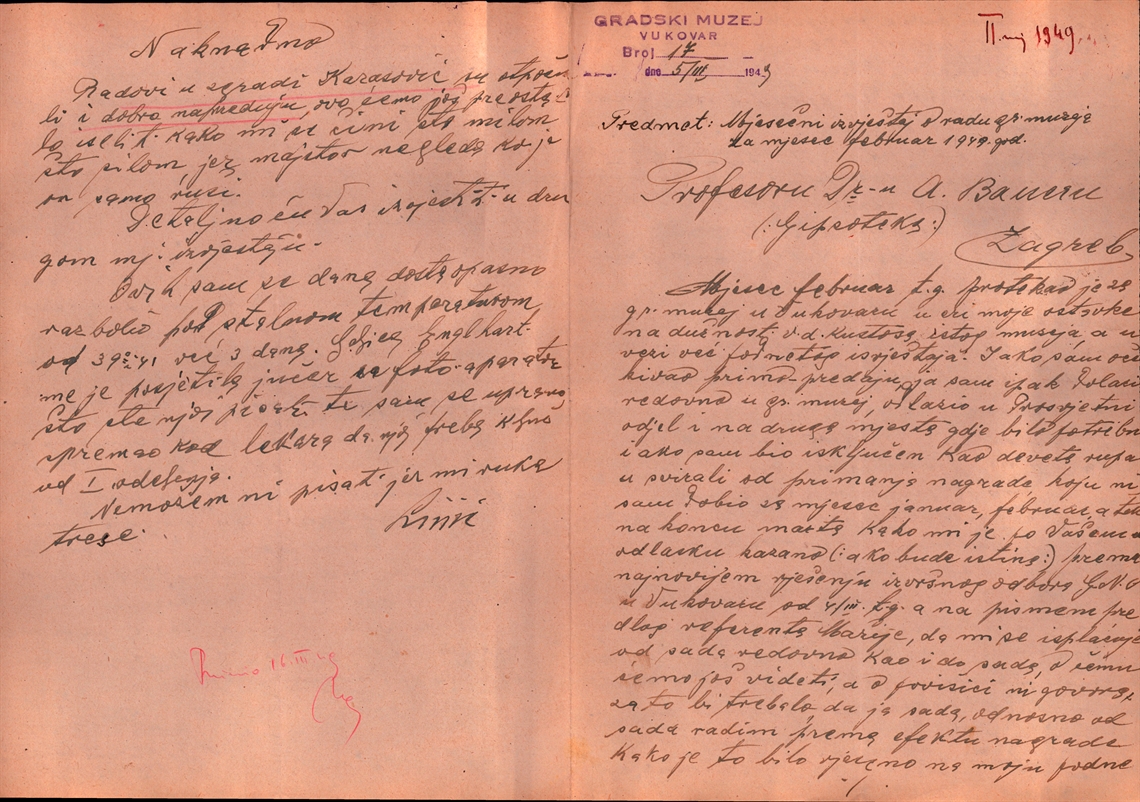 Naknadno
Radovi u zgradi Karasović su otpoče
li i dobro napreduju, ovo ćemo još preosta
lo iseliti kako mi se čini što milom
što silom, jer majstor negleda ko je
on samo ruši.
Detaljno ću Vas izvjestit u dru
gom mj. izvještaju.
Ovih sam se dana dosta opasno
razbolio pod stalnom temperaturom
od 39º-41 već 3 dana. Englhart
me je posjetila jučer sa foto-aparatom
što ste njoj pisali te sam se upravo
spremao kod lekara da njoj treba ključ
od I odelenja.
Nemožem ni pisat jer mi ruka
trese.
Primio 16.III 49
GRADSKI MUZEJ
VUKOVAR
Broj 17
dne 5/III 1949
II mj 1949.
Predmet: Mjesečni izvještaj o radu gr. muzeja
za mjesec februar 1949. god.
Profesoru Dr-u A. Baueru
(:Gipsoteka:)
Zagreb
Mjesec februar t.g. protekao je za
gr. muzej u Vukovaru u eri moje ostavke
na dužnosti v.d. kustosa istog museja, a u
vezi već podnetog izvještaja. Iako sam oče
kivao primo-predaju, ja sam ipak dolazi
redovno u gr. muzej, odlazio u Prosvjetni
odjel i na druga mjesta gdje bilo potrebno
iako sam bio isključen kao deveta rupa
u svirali od primanja nagrade, koju ni
sam dobio za mjesec januar, februar, a tek
na koncu marta kako mi je po Vašem
odlasku kazano (:ako bude istina:) prema
najnovijem rješenju izvršnog odbora G.N.O
u Vukovaru od 4/III. t.g. a na pismen pre
dlog referenta Marije, da mi se isplaćuje
od sada redovno kao i do sada, o čemu
ćemo još videti, a o povišici ni govora,
zato bi trebalo da ja sada, odnosno od
sada radim prema efektu nagrade
Kako je to bilo rječeno na moju podne